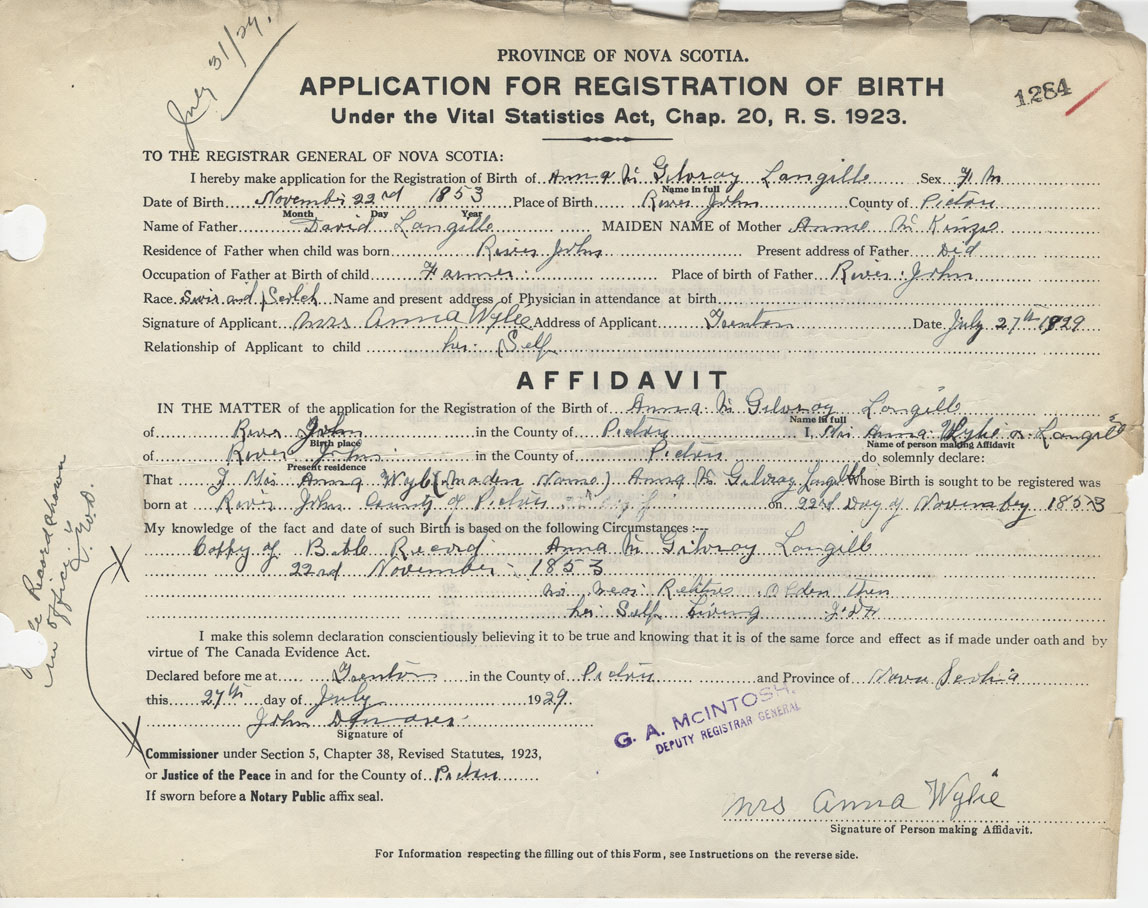 July 31/29.
PROVINCE OF NOVA SCOTIA.
1284
APPLICATION FOR REGISTRATION OF BIRTH
Under the Vital Statistics Act, Chap. 20, R. S. 1923.
TO THE REGISTRAR GENERAL OF NOVA SCOTIA:
I hereby make application for the Registration of Birth of Anna Mc Gilvray Langille Sex F. M
Name in full
Date of Birth November 22nd 1853 Place of Birth River John County of Pictou
Month Day Year
Name of Father David Langille MAIDEN NAME of Mother Annie Mc Kinzie
Residence of Father when child was born River John Present address of Father Did
Occupation of Father at Birth of child Farmer Place of birth of Father River John
Race Swis and Scotch Name and present address of Physician in attendance at birth
Signature of Applicant Mrs Anna Wylie Address of Applicant Trenton Date July 27th 1929
Relationship of Applicant to child her Self
AFFIDAVIT
IN THE MATTER of the application for the Registration of the Birth of Anna Mc Gilvray Langille
Name in full
of River John in the County of Pictou I, Mrs Anna Wylie or Langille
Birth place Name of person making Affidavit
of River John in the County of Pictou do solemnly declare:
Present residence
That I Mrs Anna Wylie (maden Name) Anna Mc Gilvray Langille Whose Birth is sought to be registered was
born at River John County of Pictou on 22rd Day of November 1853
My knowledge of the fact and date of such Birth is based on the following Circumstances :--
Coppy of Bible Record Anna Mc Gilvray Langille
22rd November 1853
no near Relitives Olden then
her Self Living
I make this solemn declaration conscientiously believing it to be true and knowing that it is of the same force and effect as if made under oath and by
virtue of The Canada Evidence Act.
Declared before me at Trenton in the County of Pictou and Province of Nova Scotia
this 27th day of July 1929
John
Signature of
G. A. MCINTOSH.
DEPUTY REGISTRAR GENERAL
Commissioner under Section 5, Chapter 38, Revised Statutes, 1923,
or Justice of the Peace in and for the County of Pictou
If sworn before a Notary Public affix seal.
Mrs Anna Wylie
Signature of Person making Affidavit.
For Information respecting the filling out of this Form, see Instructions on the reverse side.
Record shown
in office